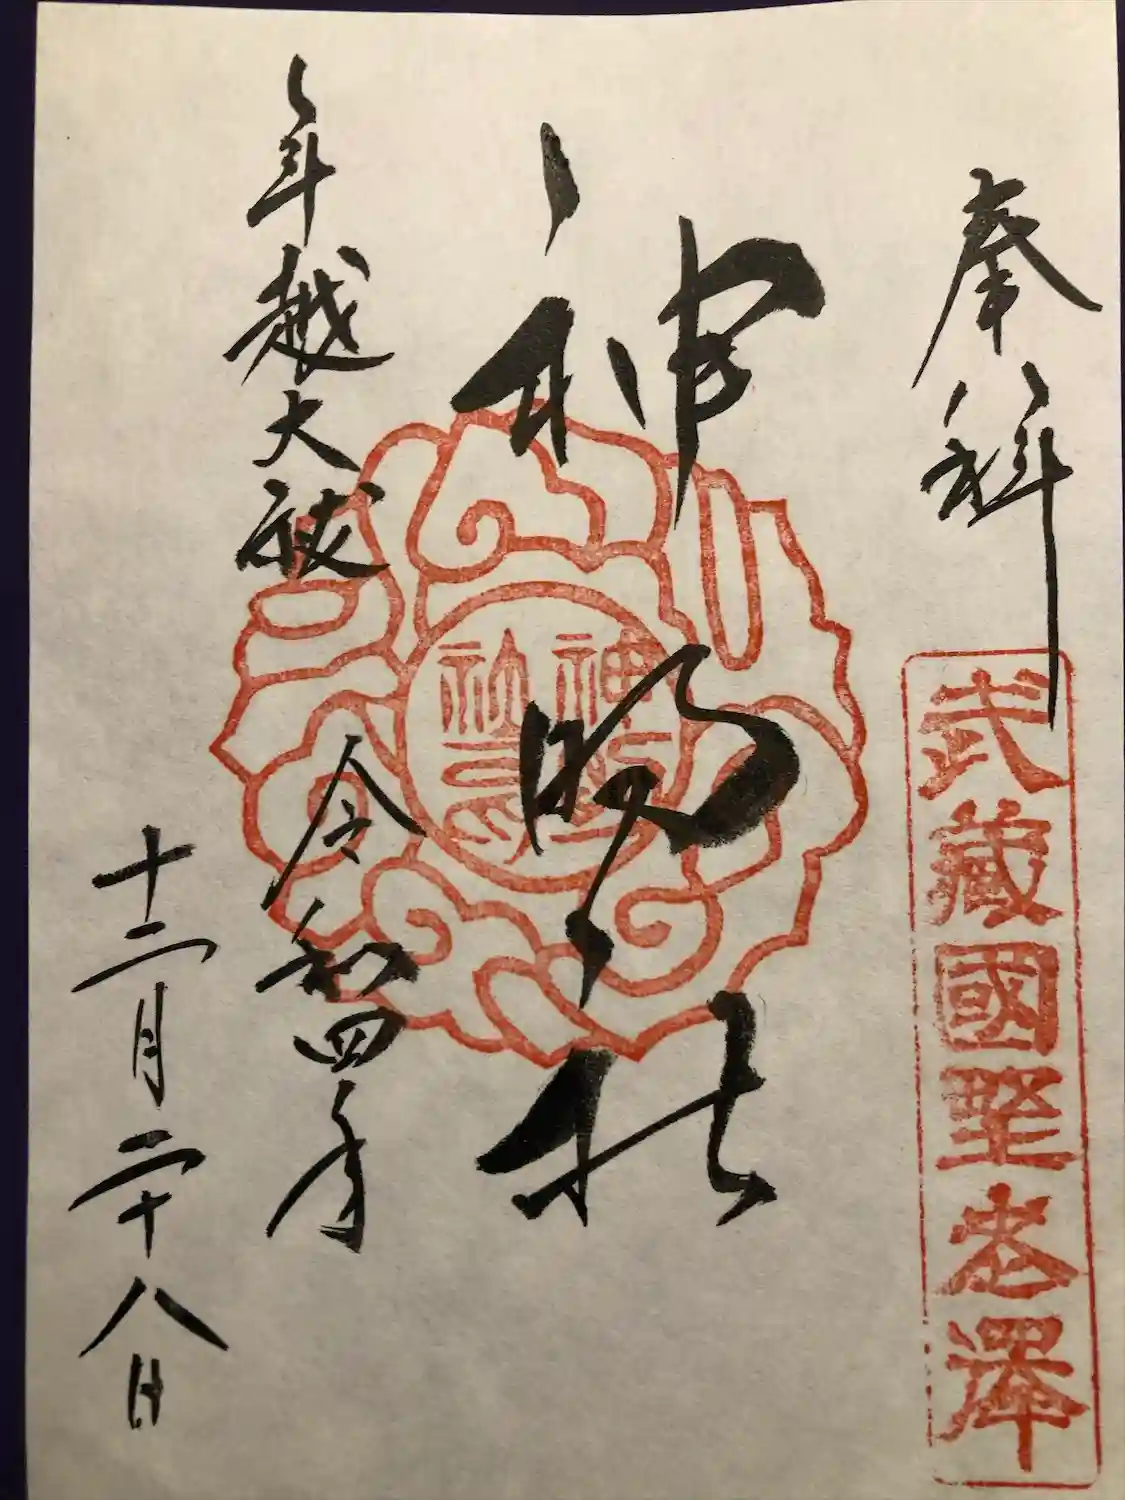 奉拝
武蔵國野老澤
神明社
神明社
年越大祓
令和四年
十二月二十八日